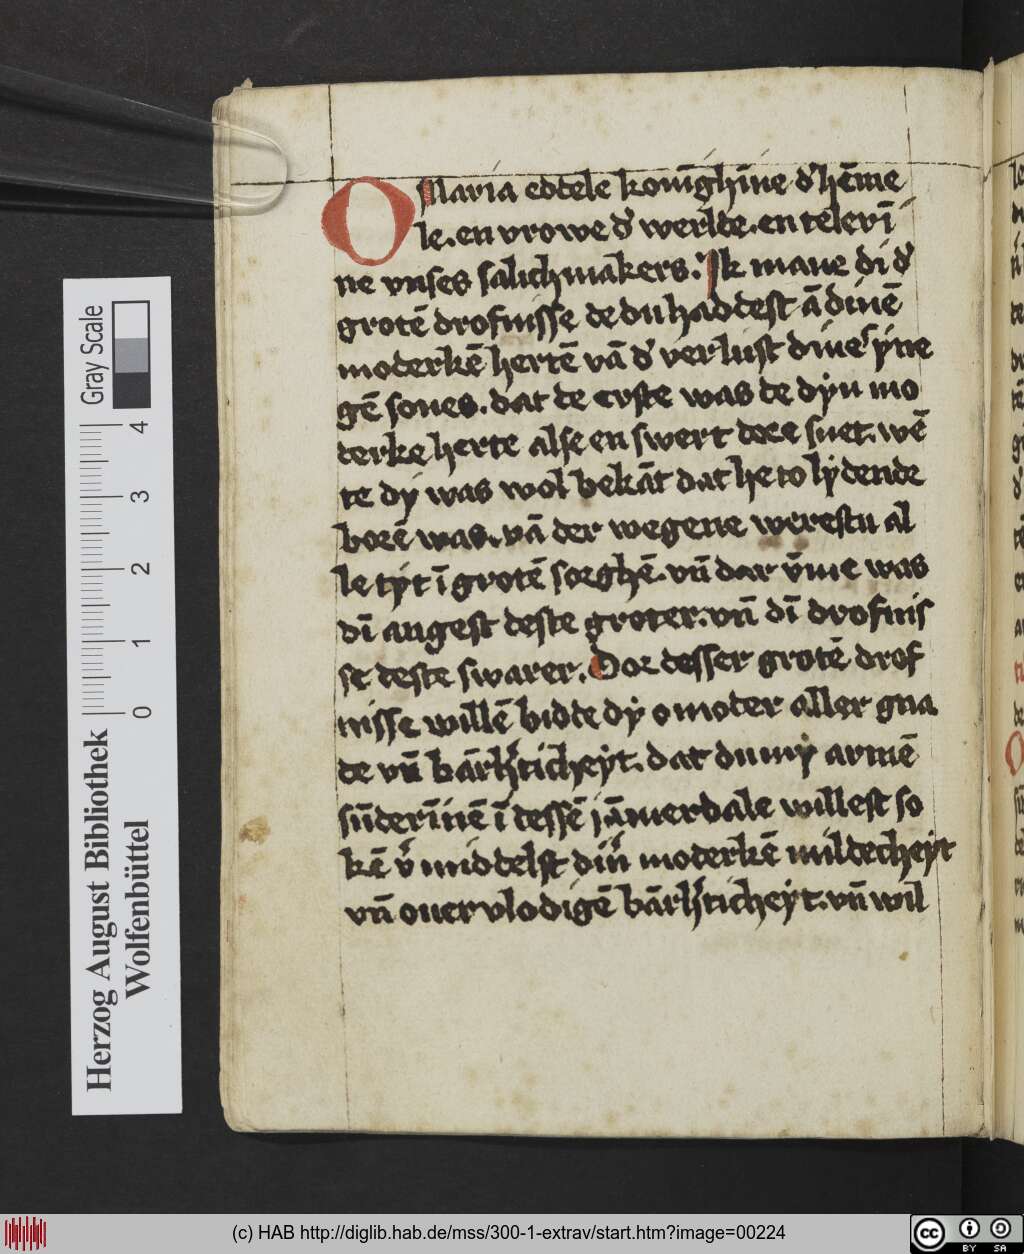 O Maria eddele konīghīne d' hēme
le. en vrowe d' werlde. en telerī
ne vnses salichmakers. Ik mane di d'
grotē drofnisse de du haddest ā dinē
moderkē hertē vā d' verlust dine' ỿne
gē sones. dat de erste was de dẏn mo
derke herte alse en swert dore snet. wē
te dẏ was wol bekāt dat he to lẏdende
borē was. vā der wegene werestu al
le tẏt ī grotē sorghē. vn̄ dar v̄me was
dī angest deste groter. vn̄ dī drofnis
se deste swarer. Dor desser grotē drof
nisse willē bidde dẏ o moder aller gna
de vn̄ bārh'ticheẏt. dat du mẏ armē
sūderīnē ī dessē jāmerdale willest so
kē v' middelst din' moderkē mildecheẏt
vn̄ ouervlodigē bārh'ticheẏt. vn̄ wil
Herzog August Bibliothek
Wolfenbüttel
0 1 2 3 4
Gray Scale
(c) HAB http://diglib.hab.de/mss/300-1-extrav/start.htm?image=00224
cc BY SA